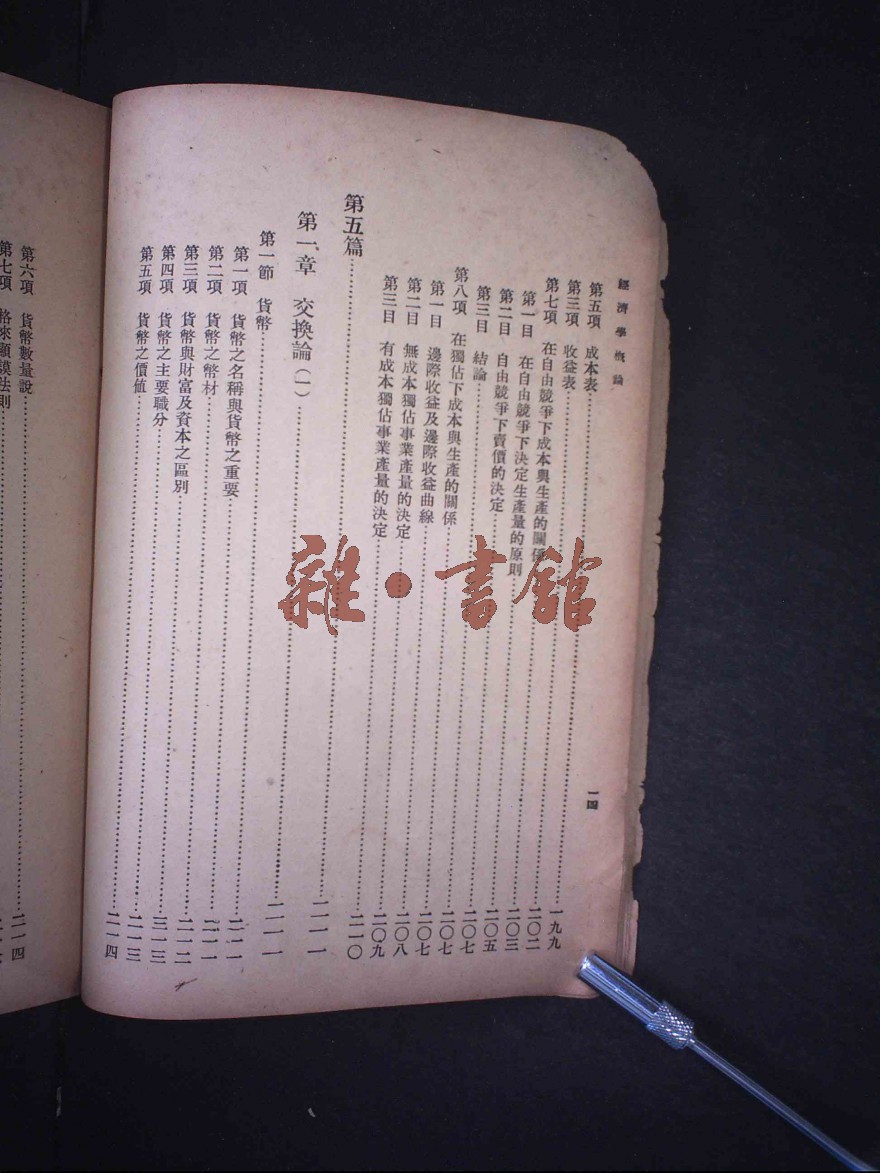 經濟學概論 一四
第五項 成本表……一九九
第三項 收益表……二〇二
第七項 在自由競爭下成本與生產的關係……二〇三
第一目 在自由競爭下決定生產量的原則……二〇五
第二目 自由競爭下賣價的決定……二〇七
第三目 結論……二〇七
第八項 在獨佔下成本與生產的關係……二〇七
第一目 邊際收益及邊際收益曲線……二〇八
第二目 無成本獨佔事業產量的決定……二〇九
第三目 有成本獨佔事業產量的決定……二一〇
第五篇……二一一
第一章 交換論(一)……二一一
第一節 貨幣……二一一
第一項 貨幣之名稱與貨幣之重要……二一一
第二項 貨幣之幣材……二一二
第三項 貨幣與財富及資本之區別……三一三
第四項 貨幣之主要職分……二一三
第五項 貨幣之價值……二一四
第六項 貨幣數量說……二一四
第七項 法則
雜·書館